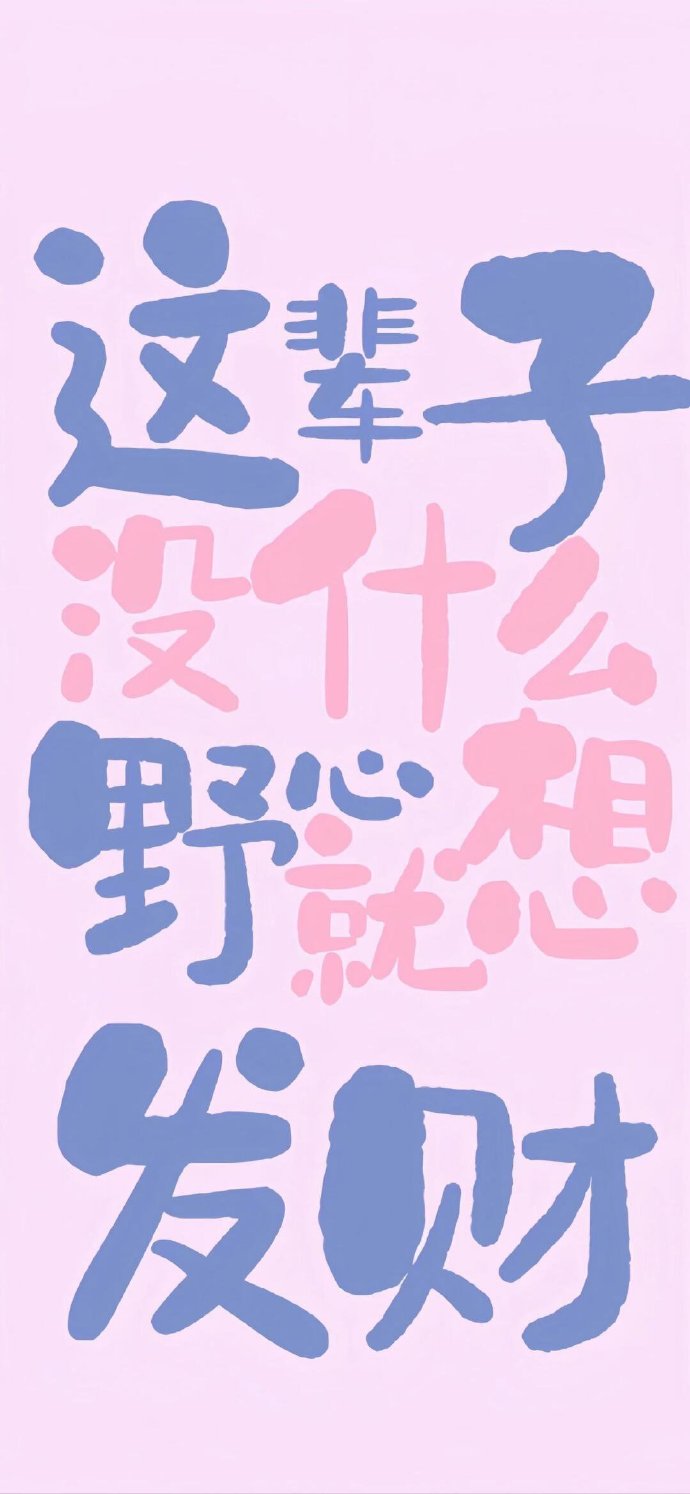 这辈子
没什么
野心就想
发财